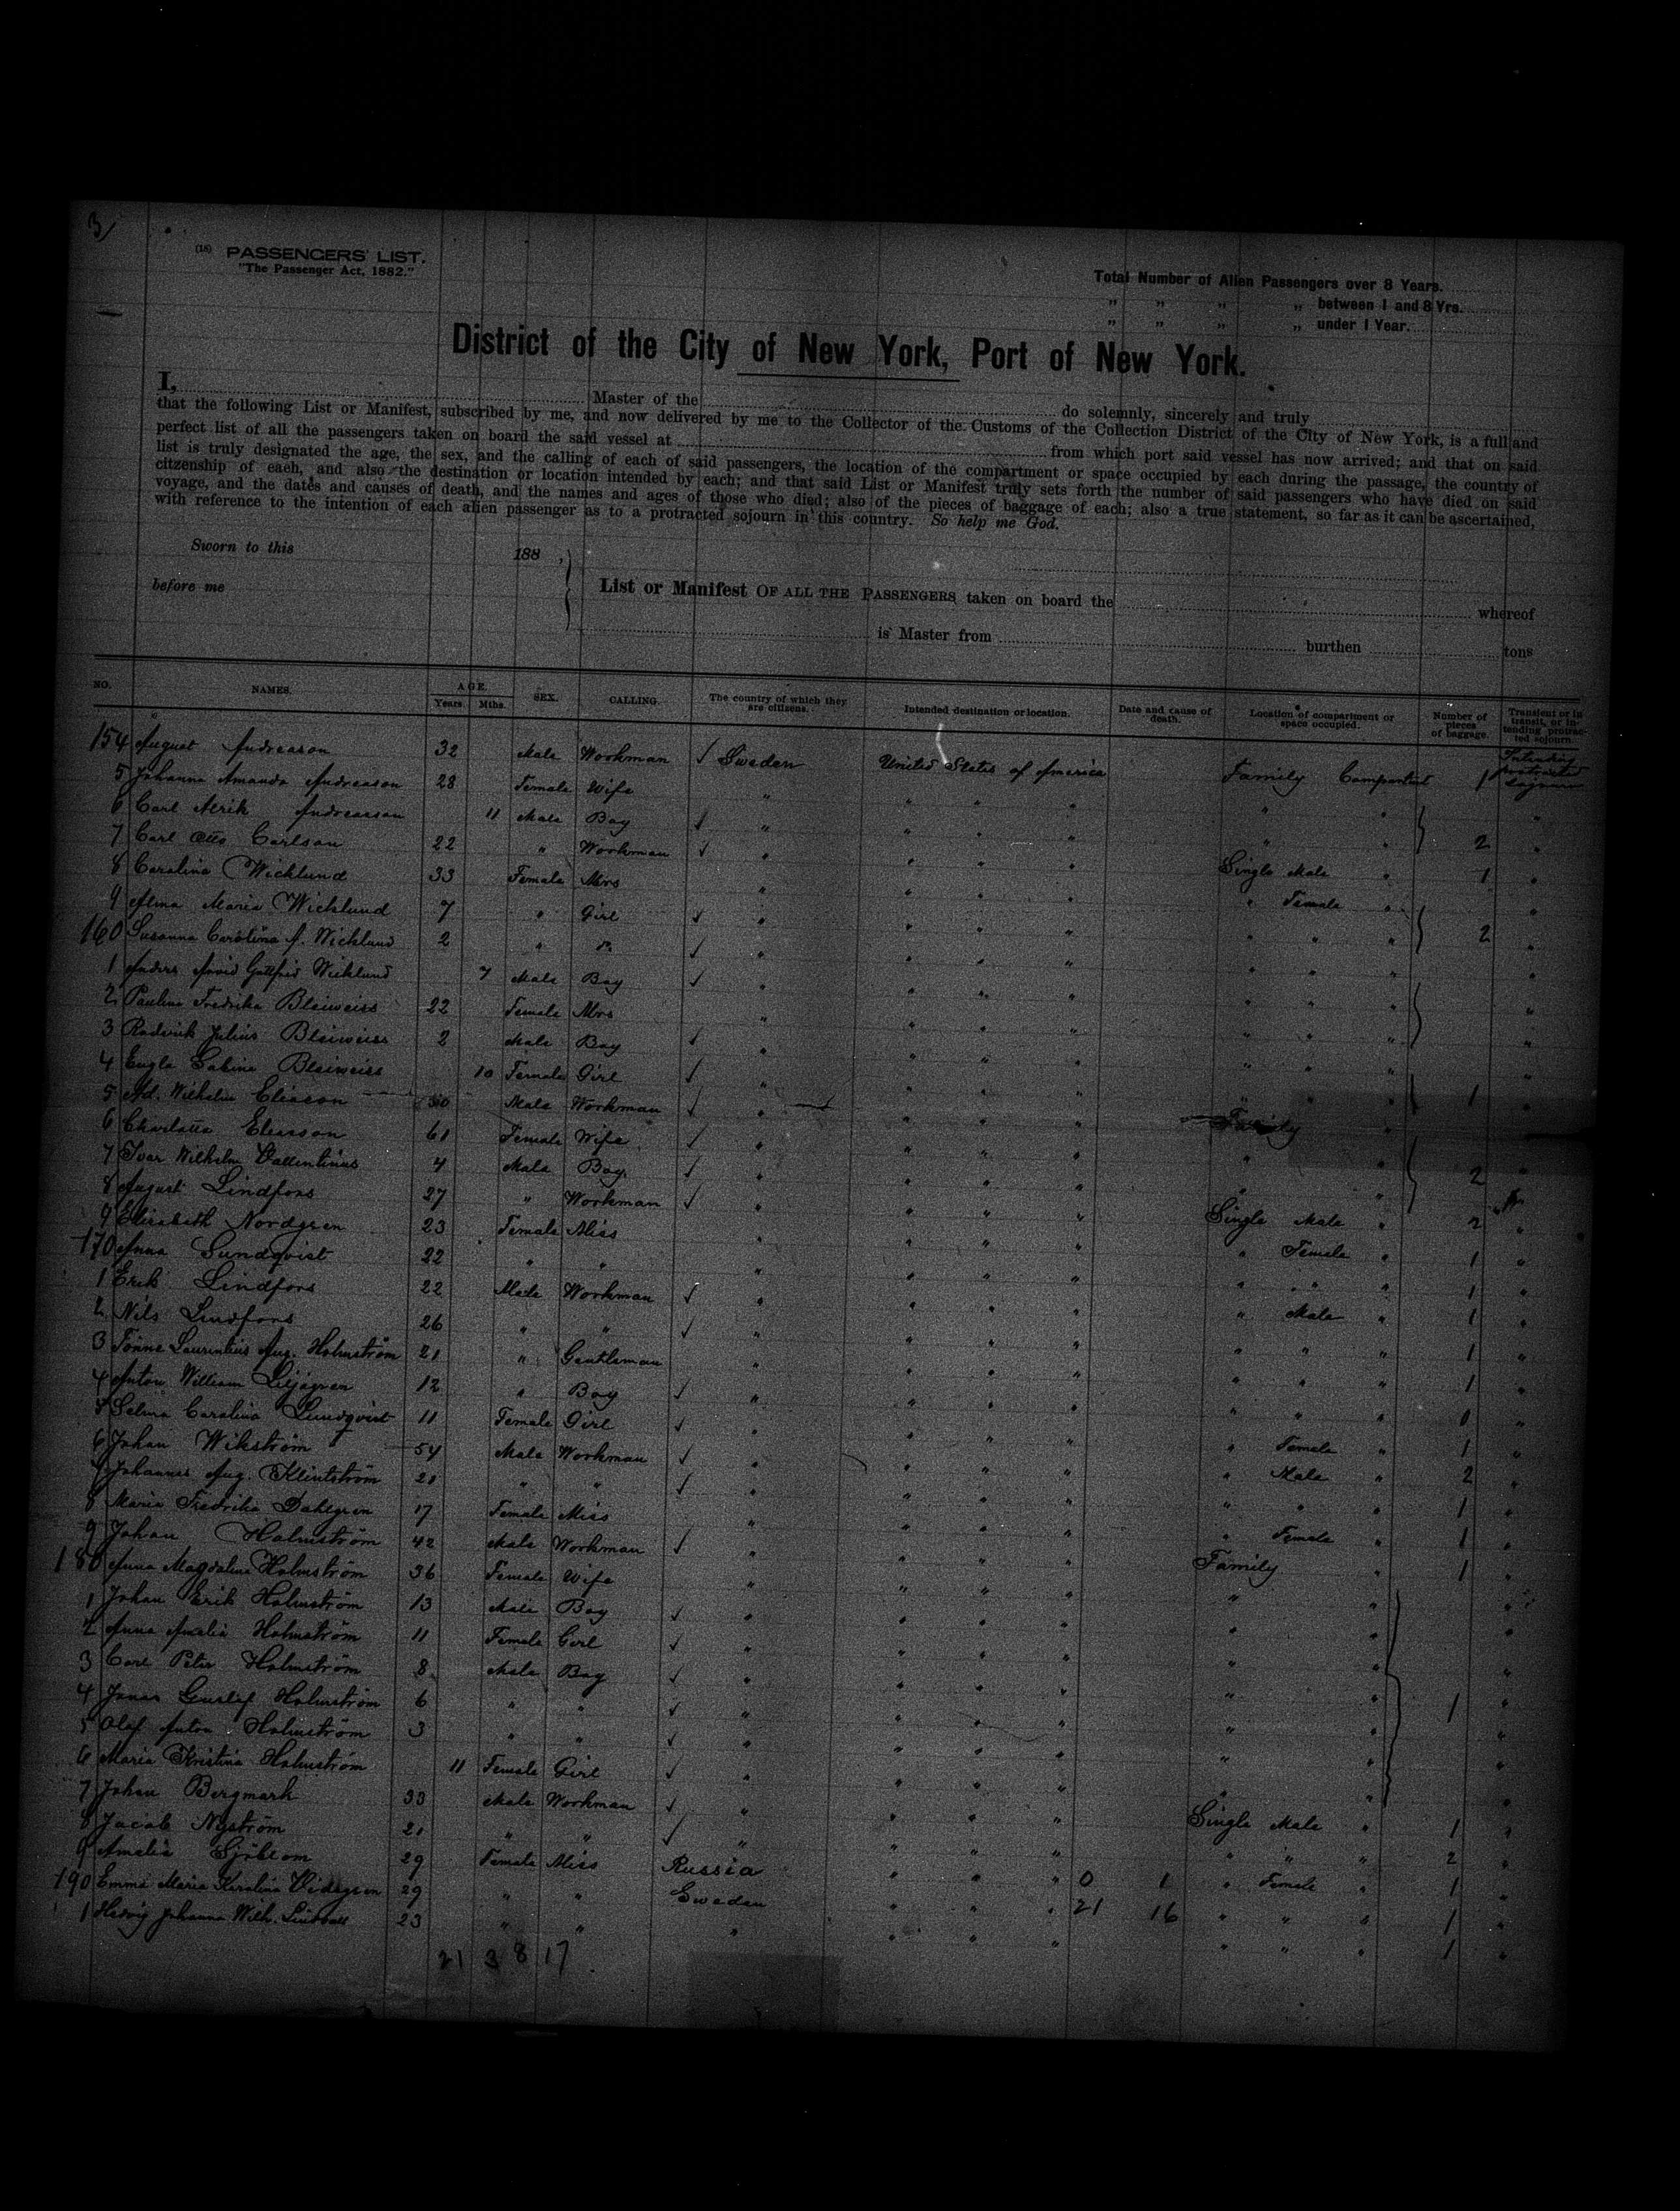 3/
(18) PASSENGERS' LIST.
"The Passenger Act, 1882."
Total Number of Alien Passengers over 8 Years.
„ „ „ „ between 1 and 8 Yrs.
„ „ „ „ under 1 Year.
District of the City of New York, Port of New York.
I, Master of the do solemnly, sincerely and truly
that the following List or Manifest, subscribed by me, and now delivered by me to the Collector of the Customs of the Collection District of the City of New York, is a full and
perfect list of all the passengers taken on board the said vessel at from which port said vessel has now arrived; and that on said
list is truly designated the age, the sex, and the calling of each of said passengers, the location of the compartment or space occupied by each during the passage, the country of
citzenship of each, and also the destination or location intended by each; and that said List or Manifest truly sets forth the number of said passengers who have died on said
voyage, and the dates and causes of death, and the names and ages of those who died; also of the pieces of baggage of each; also a true statement, so far as it can be ascertained,
with reference to the intention of each alien passenger as to a protracted sojourn in this country. So help me God.
Sworn to this 188 ,
before me
List or Manifest OF ALL THE PASSENGERS taken on board the whereof
is Master from burthen tons
NO. NAMES. AGE. Years. Mths. SEX. CALLING. The country of which they are citizens. Intended destination or location. Date and cause of death. Location of compartment or space occupied. Number of pieces of baggage. Transient or in transit, or intending protracted sojourn.
154 August Andreason 32 Male Workman √ Sweden United States of America Family Compartmt 1 Intending protracted sojourn
5 Johanna Amanda Andreason 28 Female Wife " " " " " " "
6 Carl Alrik Andreasson 11 Male Boy √ " " " " " " 2 "
7 Carl Otto Carlson 22 " Workman √ " " " " Single Male " 1 "
8 Carolina Wicklund 33 Female Mrs " " " " " Female " "
9 Alma Maria Wicklund 7 " Girl √ " " " " " " " 2 "
160 Susanna Carolina A. Wicklund 2 " " √ " " " " " " " "
1 Anders Arvid Gottfrid Wicklund 7 Male Boy √ " " " " " " " "
2 Paulina Fredrika Bleiweiss 22 Female Mrs " " " " " " " "
3 Julius Bleiweiss 2 Male Boy √ " " " " " " " "
4 Sabina Bleiweiss 10 Female Girl √ " " " " " " " 1 "
5 Ad. Wilhelm Eliason 30 Male Workman √ " " " " Family " "
6 Charlotta Eliasson 61 Female Wife √ " " " " " " 2 "
7 Ivar Wilhelm Vallentinus 4 Male Boy √ " " " " " " "
8 August Lindfors 27 " Workman √ " " " " Single Male " 2 "
9 Elisabeth Nordgren 23 Female Miss " " " " " Female " 1 "
170 Anna Sundqvist 22 " " " " " " " " " 1 "
1 Erik Lindfors 22 Male Workman √ " " " " " Male " 1 "
2 Nils Lindfors 26 " " √ " " " " " " " 1 "
3 Laurentius Aug. Holmström 21 " Gentleman " " " " " " " 1 "
4 Anton William Liljegren 12 " Boy √ " " " " " " "  "
5 Selma Carolina Lundqvist 11 Female Girl √ " " " " " Female " 1 "
6 Johan Wikström 54 Male Workman √ " " " " " Male " 2 "
7 Johannes Aug. Klintström 21 " " √ " " " " " " " 1 "
8 Maria Fredrika Dahlgren 17 Female Miss " " " " " Female " 1 "
9 Johan Holmström 42 Male Workman √ " " " " Family " 1 "
180 Anna Magdalena Holmström 36 Female Wife " " " " " " "
1 Johan Erik Holmström 13 Male Boy √ " " " " " " "
2 Anna Amalia Holmström 11 Female Girl √ " " " " " " "
3 Carl Peter Holmström 8 Male Boy √ " " " " " " 1 "
4 Jonas Gustaf Holmström 6 " " √ " " " " " " "
5 Olof Anton Holmström 3 " " √ " " " " " " "
6 Maria Kristina Holmström 11 Female Girl √ " " " " " " "
7 Johan Bergmark 33 Male Workman √ " " " " Single Male " 1 "
8 Jacob Nyström 21 " " √ " " " " " " " 2 "
9 Amalia Sjöblom 29 Female Miss Russia " " " 0 1 " Female " 1 "
190 Emma Maria Karolina Widegren 29 " " Sweden " " " 21 16 " " " 1 "
1 Hedvig Johanna Wilh. 23 " " " " " " " " " 1 "
21 3 8 17